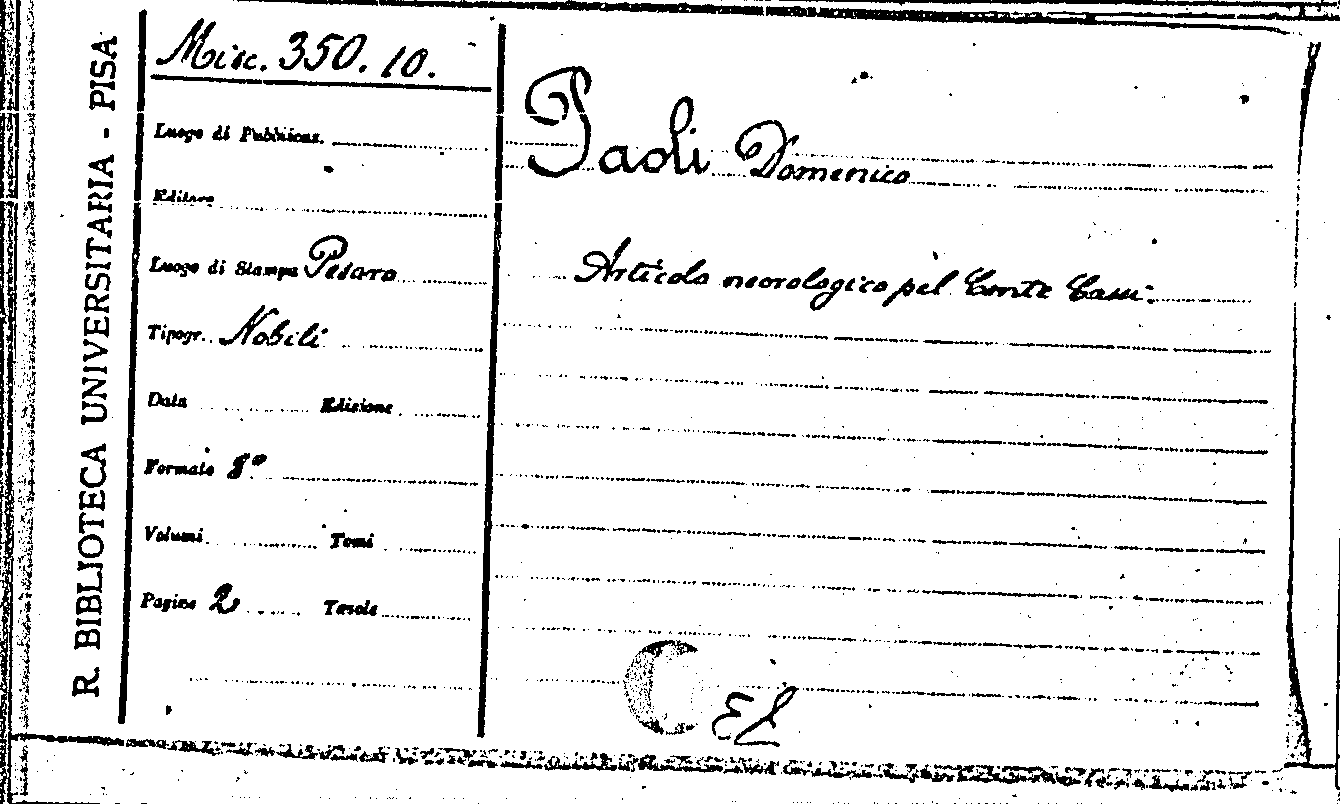 R. BIBLIOTECA UNIVERSITARIA - PISA
Misc. 350. 10.
Luogo di Pubblicaz.
Editore
Luogo di Stampa Pesaro
Tipogr. Nobili
Data Edizione
Formato 8°
Volumi Tomi
Pagine 2 Tavole
Paoli Domenico
Articolo necrologico pel Conte Cassi.